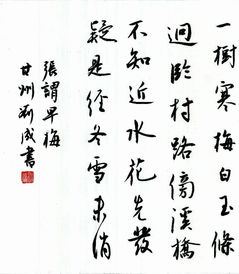 一樹寒梅白玉條
迥臨村路傍溪橋
不知近水花先發
疑是經冬雪未消
張謂早梅
甘州劉成書